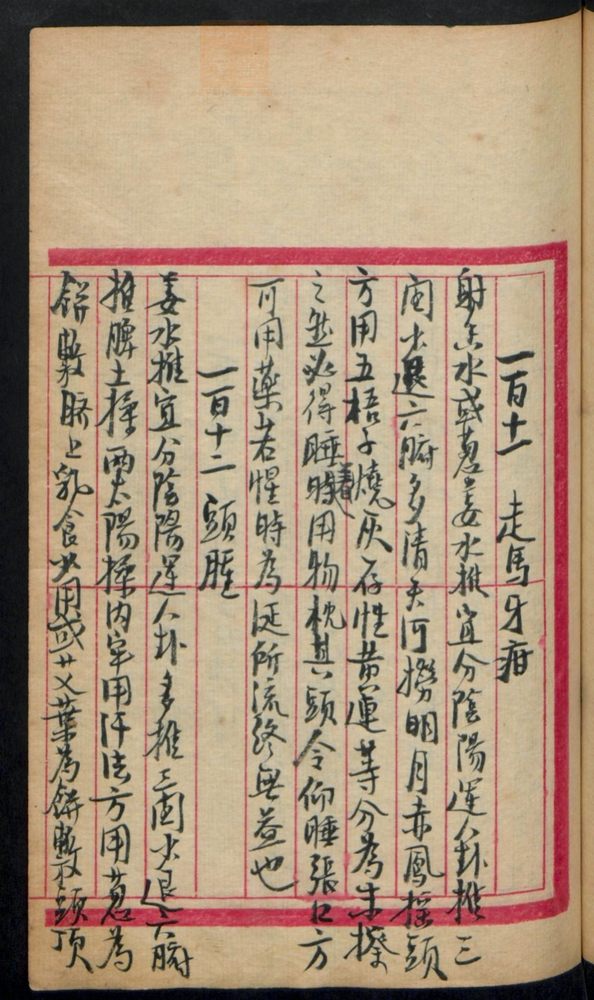 一百十一 走馬牙疳
射香水或葱姜水推宜分陰陽運八卦推三
關少退六腑多清天河撈明月赤鳳摇頭
方用五梧子燒灰存性黄連等分為末搽
之然必得睡時用物枕其頭令仰睡張口方
可用藥若惺時為涎所流終無益也
一百十二 頭腫
姜水推宜分陰陽運八卦多推三関少退六腑
推脾土揉两太陽揉内牢用汗法方用葱為
餅敷臍上乳食少用或艾葉為餅敷頭頂